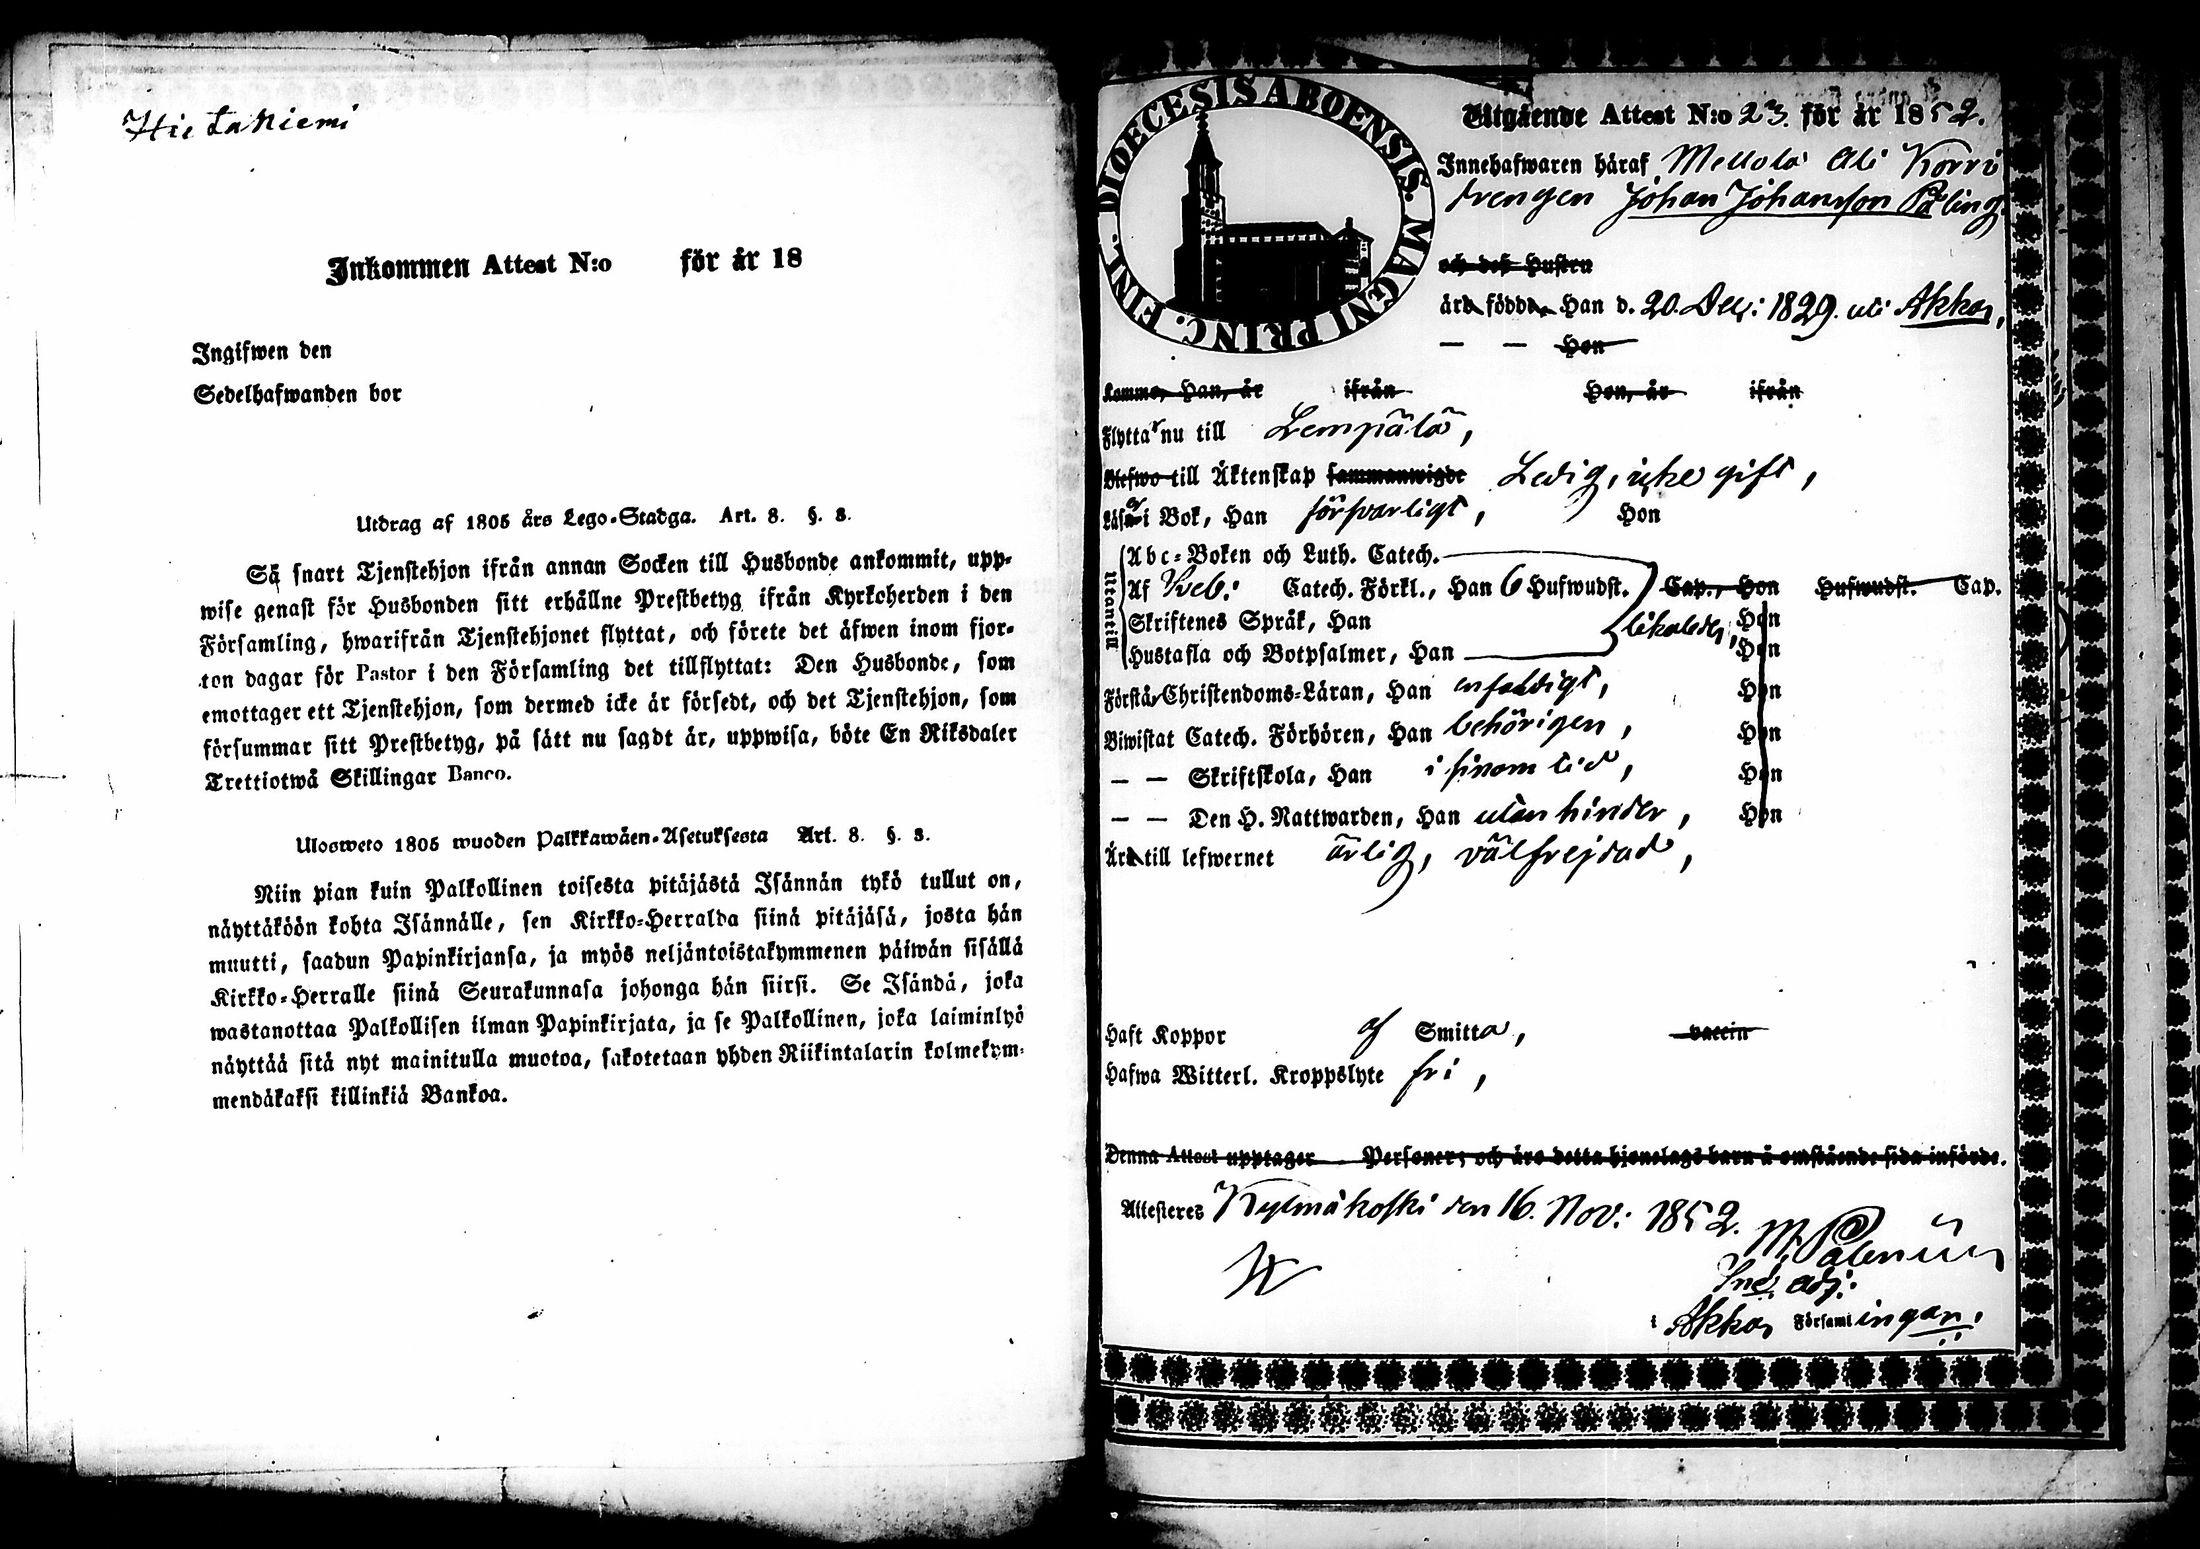 Hietaniemi
Inkommen Attest N:o för år 18
Ingifwen den
Sedelhafwanden bor
Utdrag af 1805 års Lego-Stadga. Art. 8. §. 8.
Så snart Tjenstehjon ifrån annan Socken till Husbonde ankommit, upp-
wise genast för Husbonden sitt erhållne Prestbetyg ifrån Kyrkoherden i den
Församling, hwarifrån Tjenstehjonet flyttat, och förete det äfwen inom fjor-
ton dagar för Pastor i den Församling det tillflyttat: Den Husbonde, som
emottager ett Tjenstehjon, som dermed icke är försedt, och det Tjenstehjon, som
försummar sitt Prestbetyg, på sätt nu sagdt är, uppwisa, böte En Riksdaler
Trettiotwå Skillingar Banco.
Ulosweto 1805 wuoden Palkkawäen-Asetuksesta Art. 8. §. 8.
Niin pian kuin Palkollinen toisesta pitäjästä Isännän tykö tullut on,
näyttäköön kohta Isännälle, sen Kirkko-Herralda siinä pitäjäsä, josta hän
muutti, saadun Papinkirjansa, ja myös neljäntoistakymmenen päiwän sisällä
Kirkko-Herralle siinä Seurakunnasa johonga hän siirsi. Se Isändä, joka
wastanottaa Palkollisen ilman Papinkirjata, ja se Palkollinen, joka laiminlyö
näyttää sitä nyt mainitulla muotoa, sakotetaan yhden Riikintalarin kolmekym-
mendäkaksi killinkiä Bankoa.
DIOECESIS ABOENSIS. MAGNI PRINC. FINL.
Utgående Attest N:o 23. för år 1852.
Innehafwaren häraf Mellola Ali Korri
drengen Johan Johansson Påling,
och dess Hustru
äro födde, Han d. 20. Dec: 1829. uti Akkas,
— — Hon
Komme, Han, år ifrån Hon, år ifrån
Flyttar nu till Lempälä,
Blefwo till Äktenskap sammanwigde Ledig, icke gift,
Läser i Bok, Han försvarligt, Hon
Utantill
Abc-Boken och Luth. Catech.
Af Catech. Förkl., Han 6 Hufwudst. Cap., Hon Hufwudst. Cap.
Skriftenes Språk, Han likaledes, Hon
Hustafla och Botpsalmer, Han Hon
Förstår Christendoms-Läran, Han enfaldigt, Hon
Biwistat Catech. Förhören, Han behörigen, Hon
— — Skriftskola, Han i sinom tid, Hon
— — Den H. Nattwarden, Han utan hinder, Hon
Är till lefwernet ärlig, välfrejdad,
Haft Koppor af Smitta, vaccin
Hafwa Witterl. Kroppslyte fri,
Denna Attest upptager Personer; och äro detta hjonelags barn å omstående sida införde.
Attesteres Kylmäkoski den 16. Nov: 1852.
M. Palenius
adj:
i Akkas Församlingar.